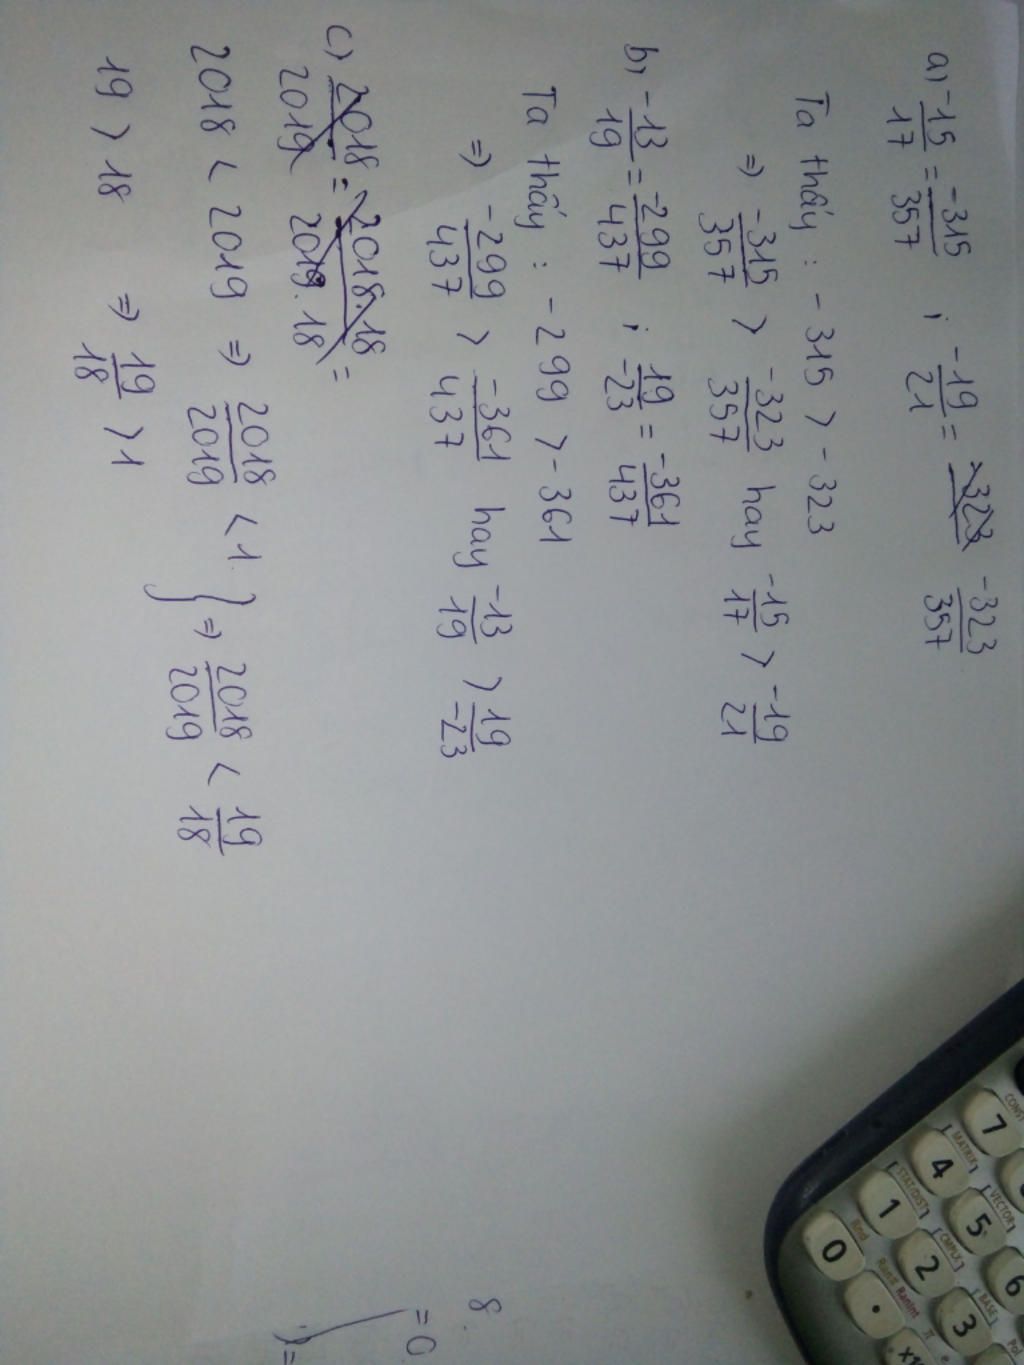 a) -15/17 = -315/357 ; -19/21 = -323 -323/357
Ta thấy : -315 > -323
=> -315/357 > -323/357 hay -15/17 > -19/21
b) -13/19 = -299/437 ; 19/-23 = -361/437
Ta thấy : -299 > -361
=> -299/437 > -361/437 hay -13/19 > 19/-23
c) 2018/2019 = 2018.18/2019.18 =
2018 < 2019 => 2018/2019 < 1 } => 2018/2019 < 19/18
19 > 18 => 19/18 > 1
8
= 0
CONST
7
MATRIX
4
VECTOR
STAT/DIST
1
5
CMPLX
6
Rnd
0
2
BASE
Ran# RanInt
.
3
π
Pol
×1